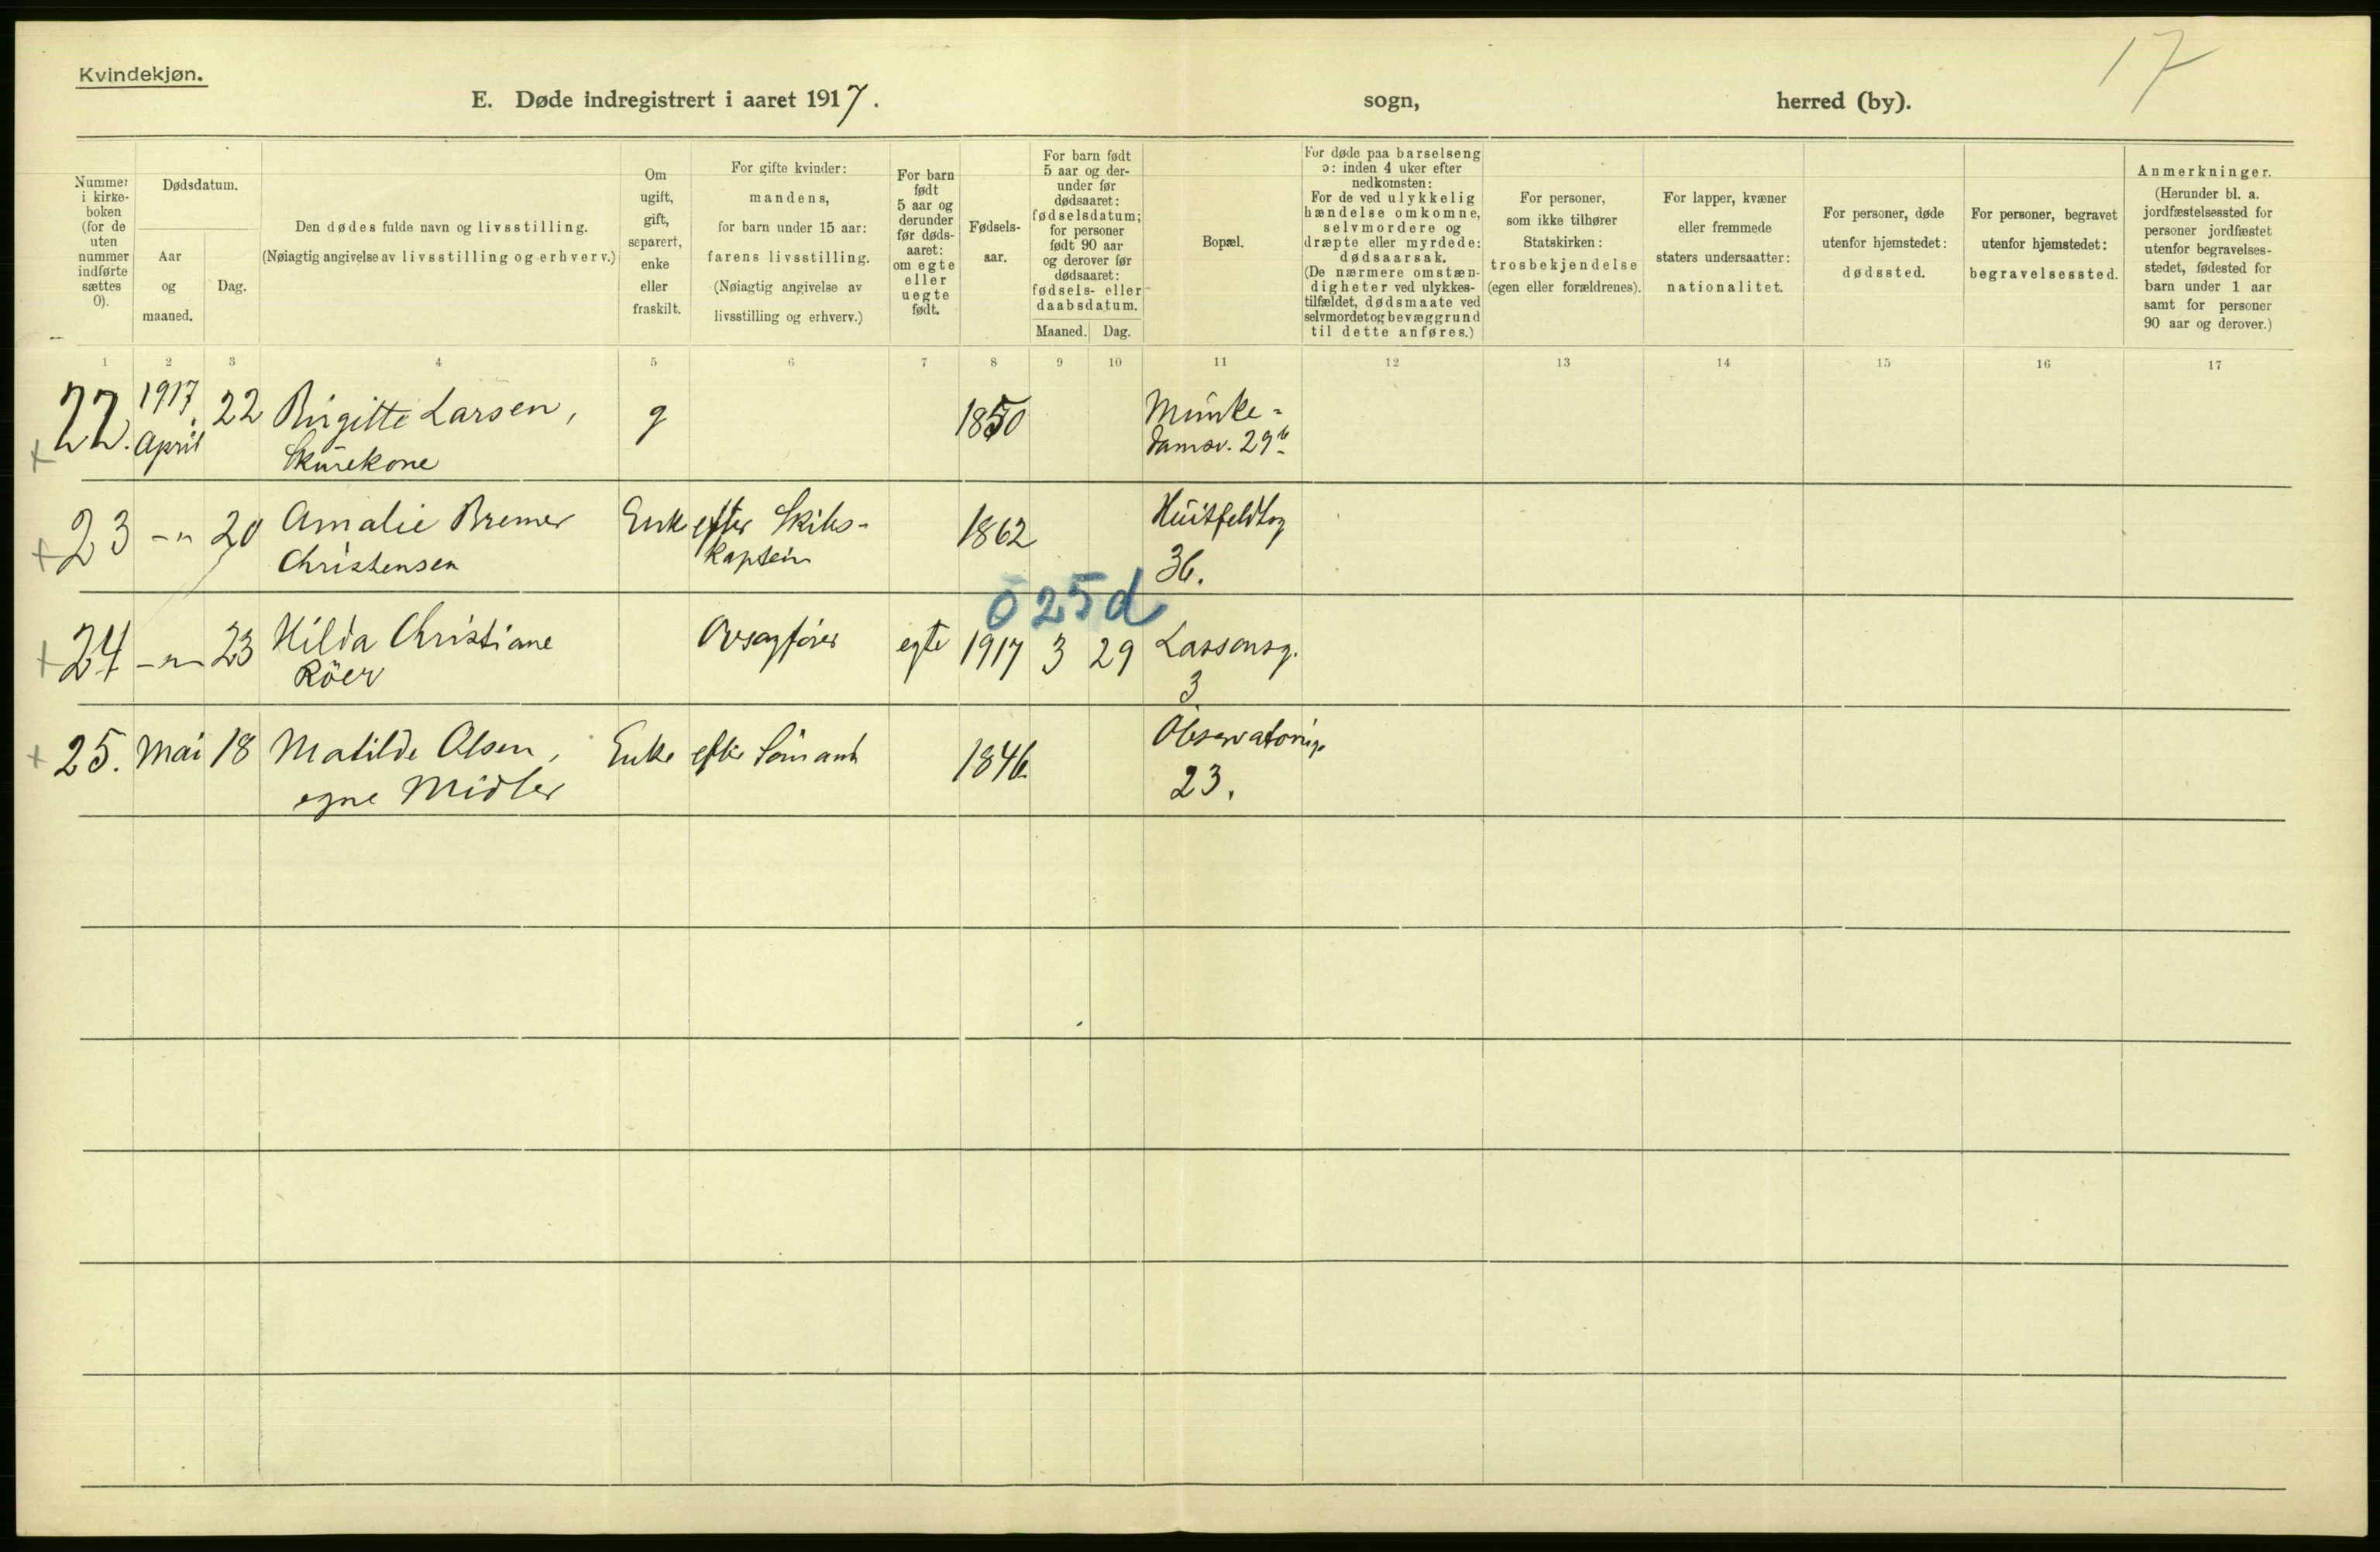 Kvindekjøn.
17
E. Døde indregistrert i aaret 1917. sogn, herred (by).
Nummer i kirke- boken (for de uten nummer indførte sættes 0).
Dødsdatum.
Aar og maaned.
Dag.
Den dødes fulde navn og livsstilling.
(Nøiagtig angivelse av livsstilling og erhverv.)
Om ugift, gift, separert, enke eller fraskilt.
For gifte kvinder: mandens, for barn under 15 aar: farens livsstilling.
(Nøiagtig angivelse av livsstilling og erhverv.)
For barn født 5 aar og derunder før døds- aaret: om egte eller uegte født.
Fødsels- aar.
For barn født 5 aar og der- under før dødsaaret: fødselsdatum; for personer født 90 aar og derover før dødsaaret: fødsels- eller daabsdatum.
Maaned. Dag.
Bopæl.
For døde paa barselseng ɔ: inden 4 uker efter nedkomsten:
For de ved ulykkelig hændelse omkomne, selvmordere og dræpte eller myrdede: dødsaarsak.
(De nærmere omstæn- digheter ved ulykkes- tilfældet, dødsmaate ved selvmordet og bevæggrund til dette anføres.)
For personer, som ikke tilhører Statskirken: trosbekjendelse (egen eller forældrenes).
For lapper, kvæner eller fremmede staters undersaatter: nationalitet.
For personer, døde utenfor hjemstedet: dødssted.
For personer, begravet utenfor hjemstedet: begravelsessted.
Anmerkninger.
(Herunder bl. a. jordfæstelsessted for personer jordfæstet utenfor begravelses- stedet, fødested for barn under 1 aar samt for personer 90 aar og derover.)
1 2 3 4 5 6 7 8 9 10 11 12 13 14 15 16 17
+ 22. 1917 April 22 Birgitte Larsen, g 1850 Munke-
Skurekone damsv. 29b
+ 23 -"- 20 Amalie Bremer Enke efter Skibs- 1862 Huitfeldtsg
Christensen kaptein 36.
0 25 d
+ 24 -"- 23 Hilda Christiane Ovsagfører egte 1917 3 29 Lassonsg.
Röer 3
+ 25. Mai 18 Matilde Olsen, Enke efter Sömand 1846 Observatorieg.
egne Midler 23.